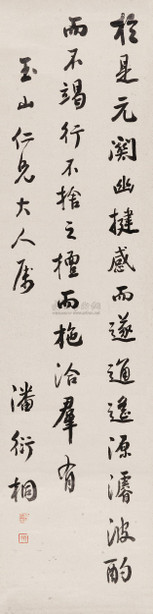 於是元關幽揵感而遂通遙源濬波酌
而不竭行不捨之檀而施洽羣有
玉山仁兄大人屬
潘衍桐